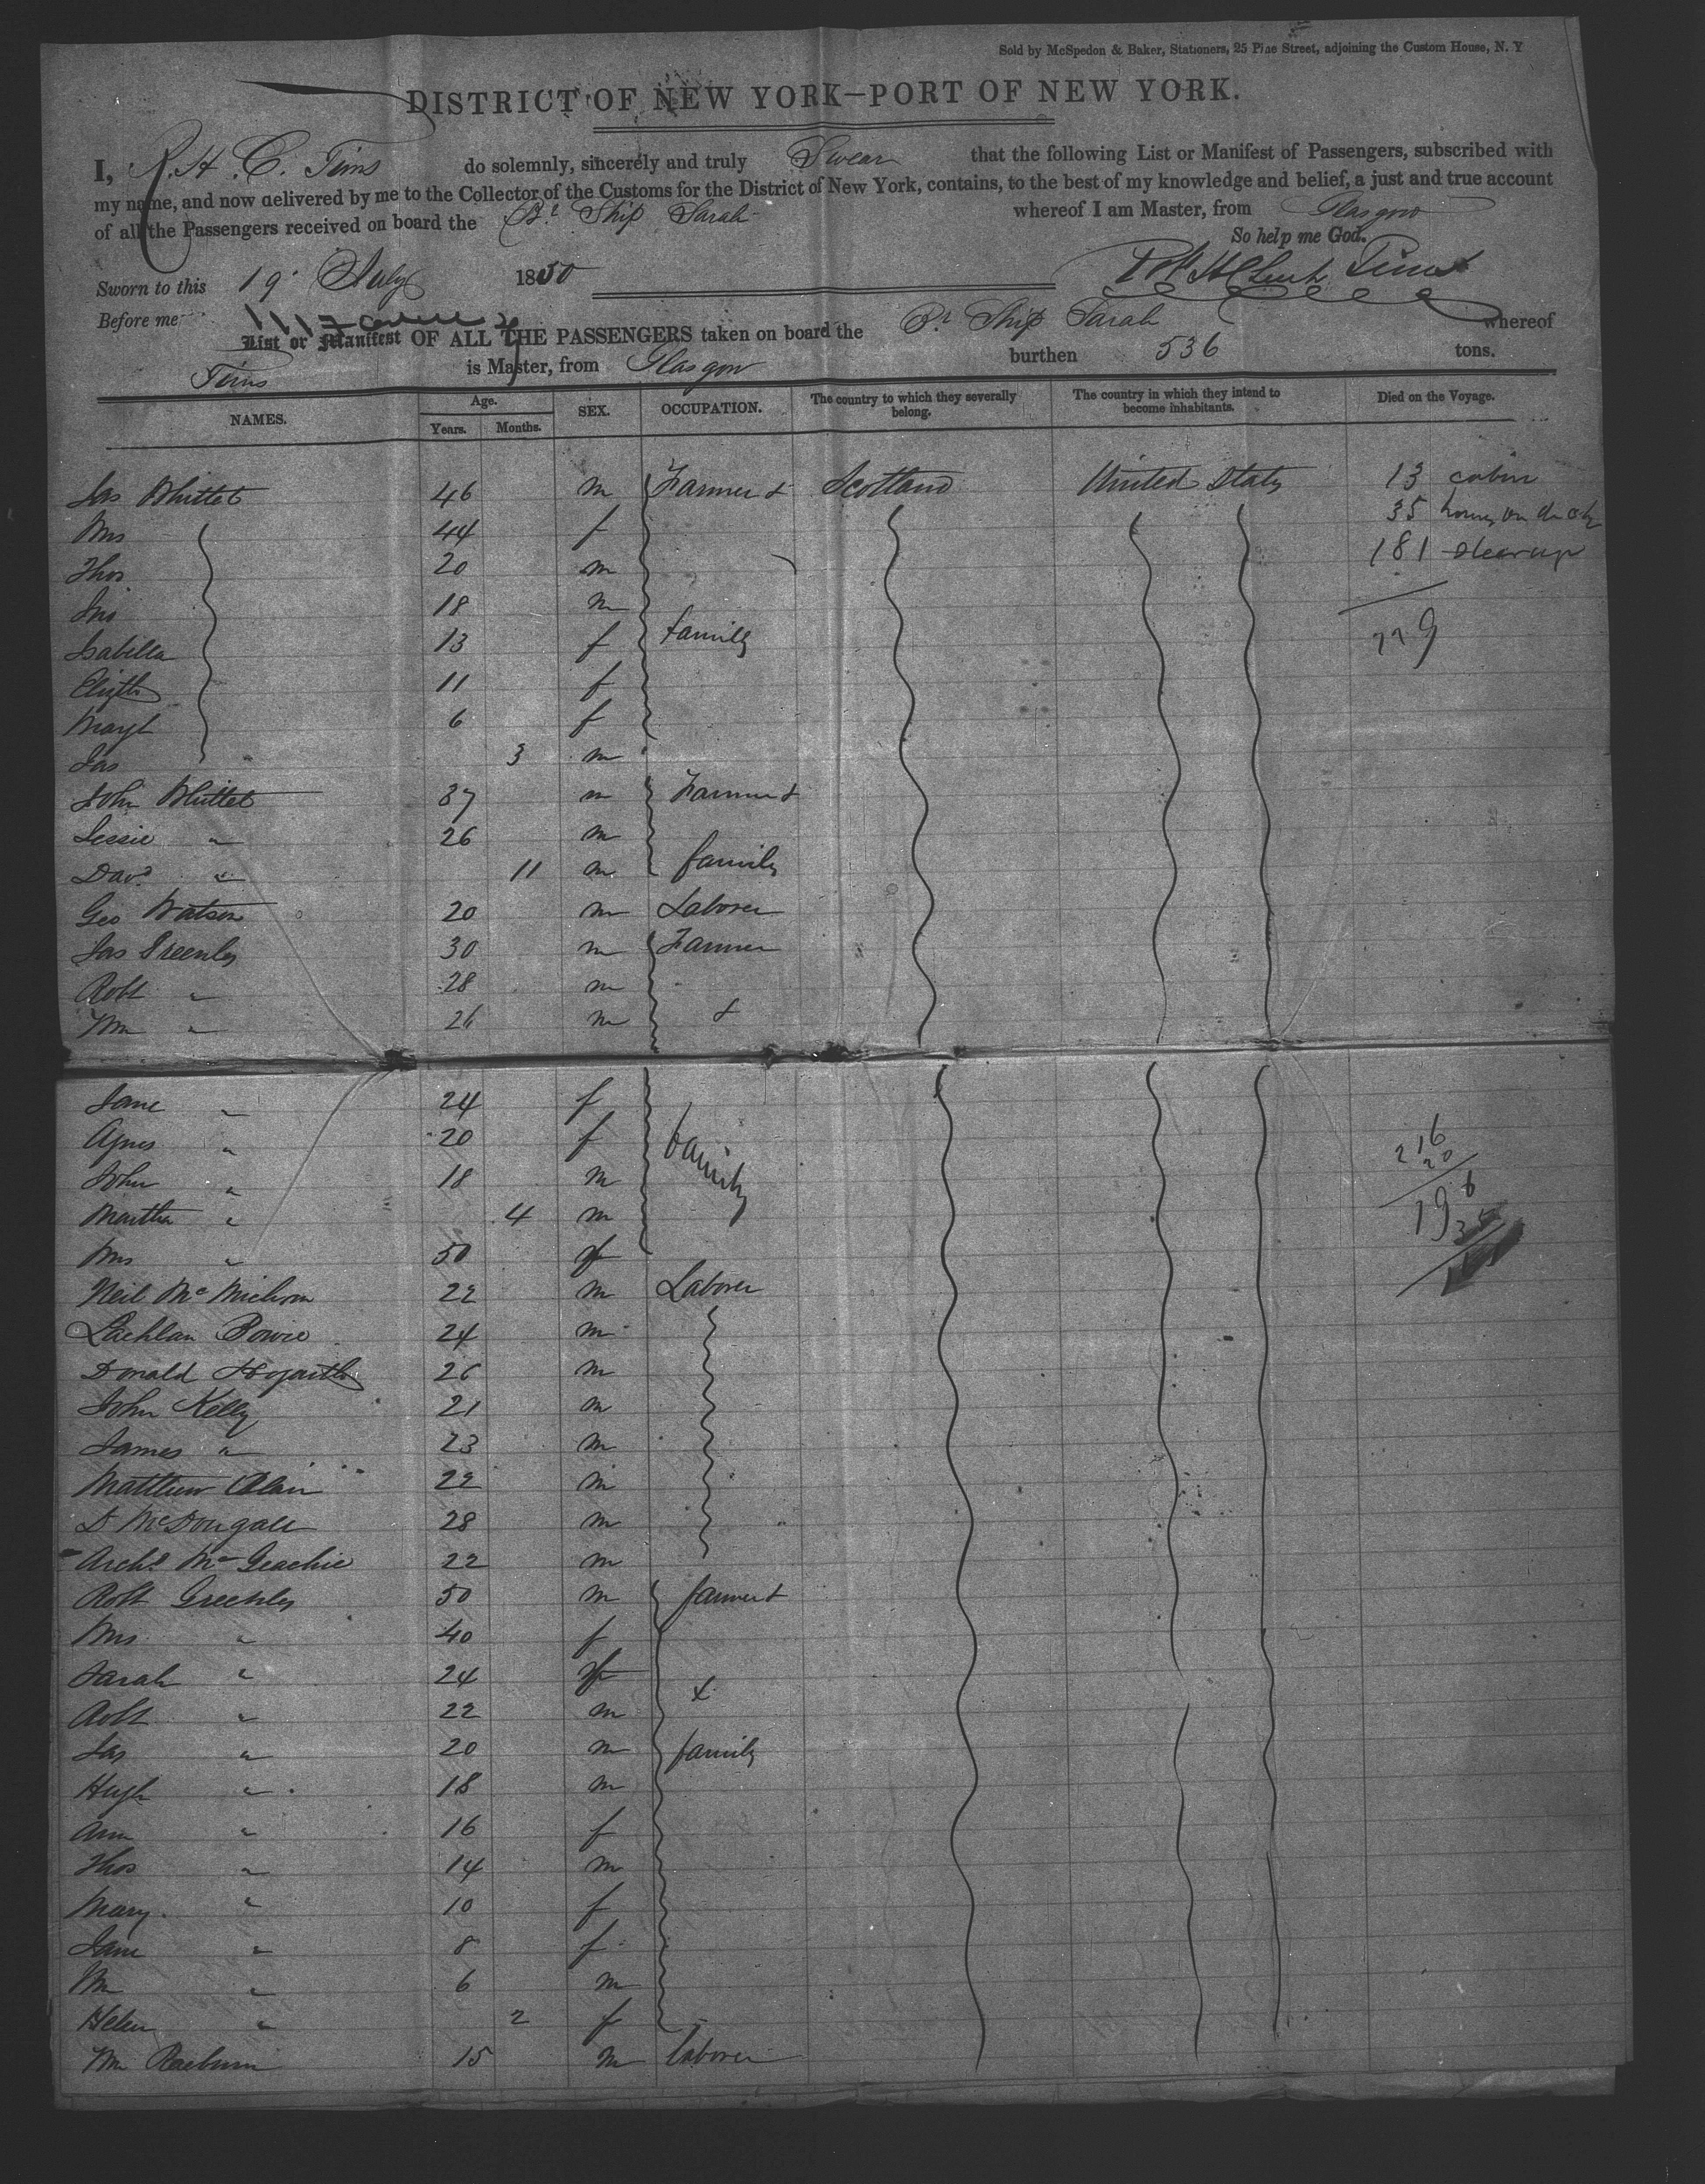 Sold by McSpedon & Baker, Stationers, 25 Pine Street, adjoining the Custom House, N. Y
DISTRICT OF NEW YORK—PORT OF NEW YORK.
I, R. H. C. Tims do solemnly, sincerely and truly Swear that the following List or Manifest of Passengers, subscribed with
my name, and now delivered by me to the Collector of the Customs for the District of New York, contains, to the best of my knowledge and belief, a just and true account
of all the Passengers received on board the Br Ship Sarah whereof I am Master, from Glasgow
So help me God.
Sworn to this 19 July 1850
Before me
List or Manifest OF ALL THE PASSENGERS taken on board the Br Ship Sarah whereof
Tims is Master, from Glasgow burthen 536 tons.
NAMES. Age. Years. Months. SEX. OCCUPATION. The country to which they severally belong. The country in which they intend to become inhabitants. Died on the Voyage.
Jas Whittet 46 m Farmer & Scotland United States 13 cabin
Mrs 44 f 35 houses on deck
Thos 20 m 181 steerage
Jno 18 m
Isabella 13 f family 229
Elizth 11 f
Margt 6 f
Jas 3 m
John Whittet 37 m Farmer &
Jessie " 26 m
Davd " 11 m family
Geo Watson 20 m Laborer
Jas Greenles 30 m Farmer
Robt " 28 m
Wm " 26 m &
Jane " 24 f
Agnes " 20 f family 216
20
John " 18 m
196
Martha " 4 m
35
Mrs " 50 f
Neil Mc 22 m Laborer
Lachlan Bowie 24 m
Donald Hogarth 26 m
John Kelly 21 m
James " 23 m
Matthew Blair 22 m
D McDougall 28 m
Archd McGeachie 22 m
Robt Greenles 50 m farmer &
Mrs " 40 f
Sarah " 24 f &
Robt " 22 m
Jas " 20 m family
Hugh " 18 m
Ann " 16 f
Thos " 14 m
Mary " 10 f
Jane " 8 f
Wm " 6 m
Helen " 2 f
Wm Raeburn 15 m laborer